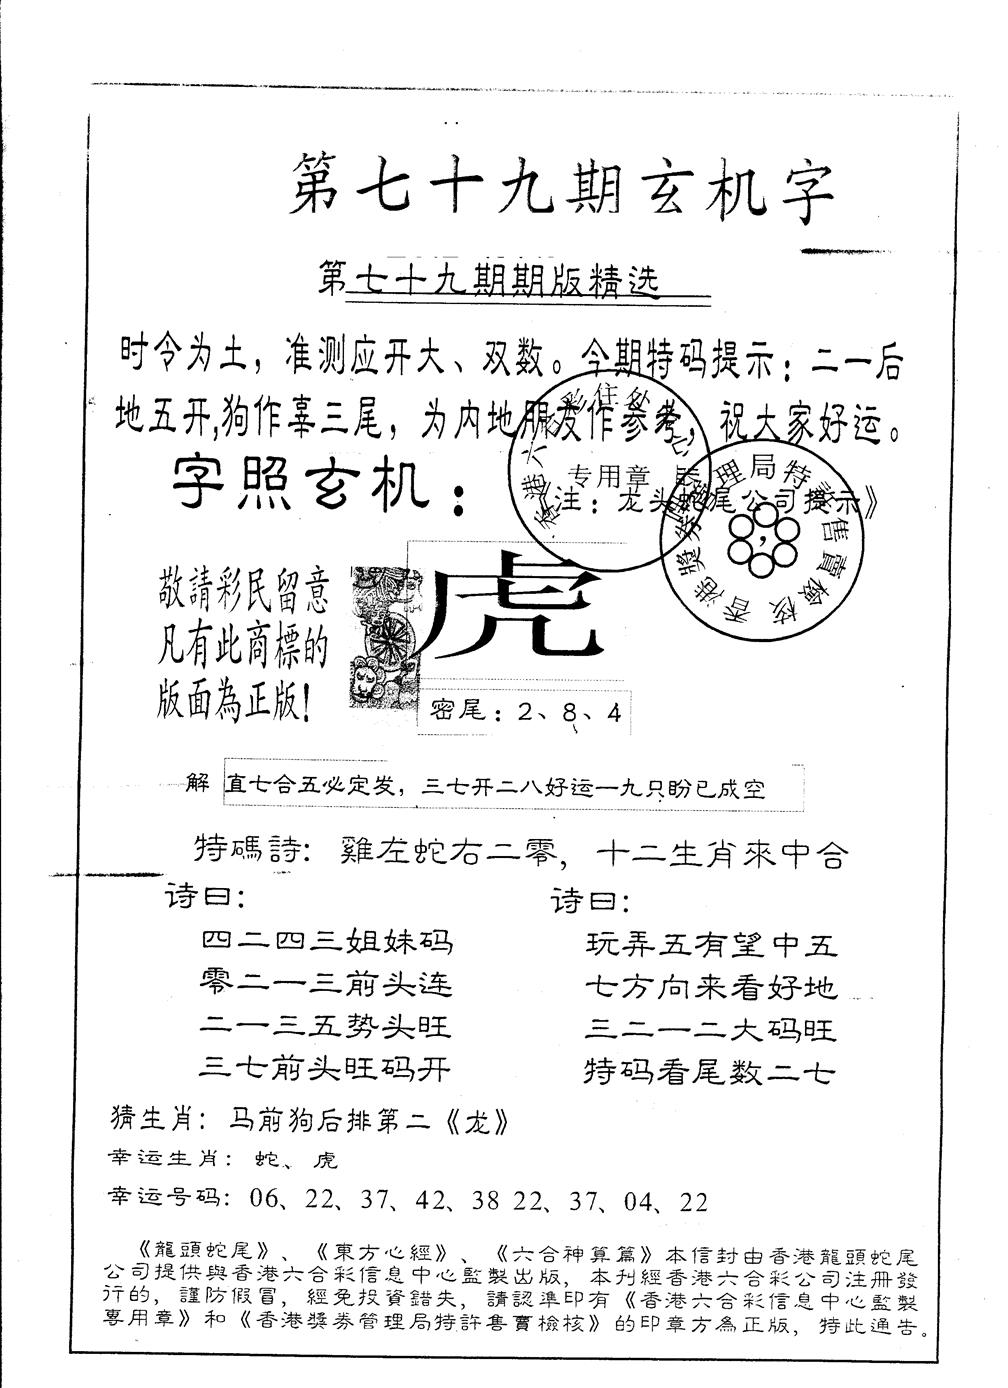 第七十九期玄机字
第七十九期期版精选
时令为土，准测应开大、双数。今期特码提示：二一后
地五开,狗作辜三尾，为内地朋友作参考，祝大家好运。
字照玄机：
注：龙头蛇尾公司提示》
专用章
香港獎券管理局特許售賣檢核
敬請彩民留意
凡有此商標的
版面為正版!
虎
密尾：2、8、4
解 直七合五必定发，三七开二八好运一九只盼已成空
特碼詩：雞左蛇右二零，十二生肖來中合
诗曰：
四二四三姐妹码
零二一三前头连
二一三五势头旺
三七前头旺码开
诗曰：
玩弄五有望中五
七方向来看好地
三二一二大码旺
特码看尾数二七
猜生肖：马前狗后排第二《龙》
幸运生肖：蛇、虎
幸运号码：06、22、37、42、38 22、37、04、22
《龍頭蛇尾》、《東方心經》、《六合神算篇》本信封由香港龍頭蛇尾
公司提供與香港六合彩信息中心監製出版，本刊經香港六合彩公司注冊發
行的，謹防假冒，經免投資錯失，請認準印有《香港六合彩信息中心監製
專用章》和《香港獎券管理局特許售賣檢核》的印章方為正版，特此通告。